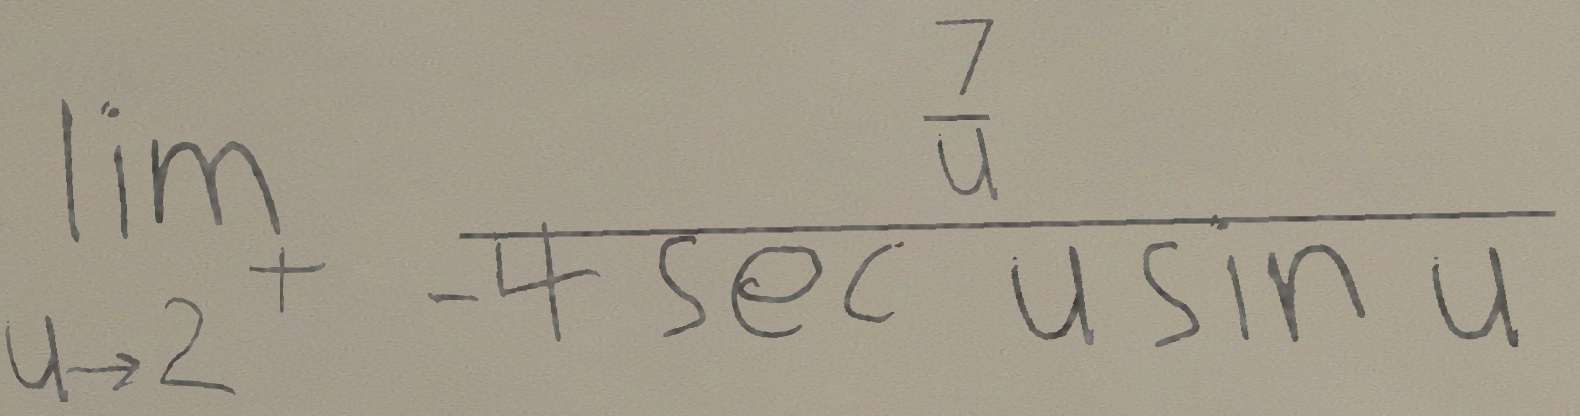 \lim_{u \to 2^+} \frac{\frac{7}{u}}{-4 \sec u \sin u}